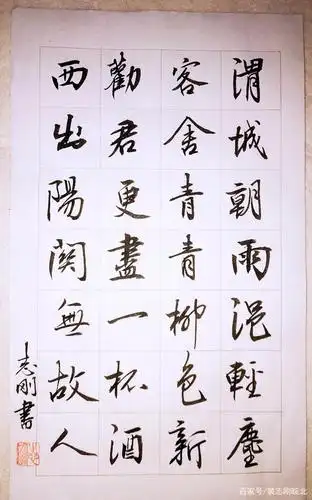 渭城朝雨浥輕塵
客舍青青柳色新
勸君更盡一杯酒
西出陽関無故人
志刚書
百家号/裴志刚皖北